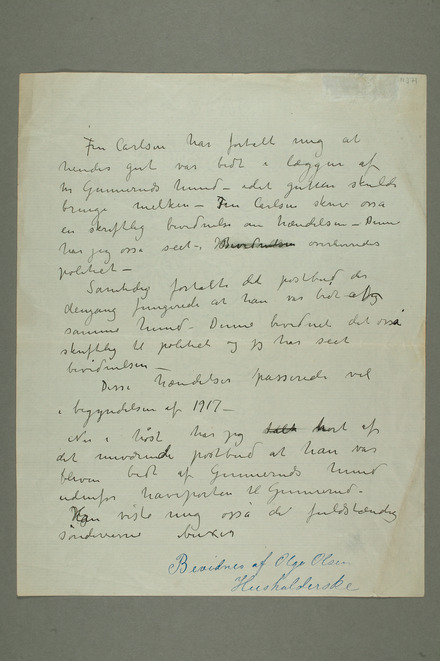 Fru Carlsen har fortalt mig at
hendes gut var bidt i læggen af
hr Gunneruds hund – idet gutten skulde
bringe melken – Fru Carlsen skrev ossa
en skriftlig bevidnelse om hændelsen – Denne
har jeg ossa seet – Bevidnelsen overleveredes
politiet –
Samtidig fortalte det postbud der
dengang fungerede at han var bidt af
samme hund – Denne bevidnet det ossa
skriftlig til politiet og jeg har seet
bevidnelsen –
Disse hændelser passerede vel
i begyndelsen af 1917 –
Nu i høst har jeg hørt af
det nuværende postbud at han var
bleven bidt af Gunneruds hund
udenfor haveporten til Gunnerud –
Han viste mig ossa de fuldstændig
sønderrevne buxer
Bevidnes af Olga Olsen
Husholderske